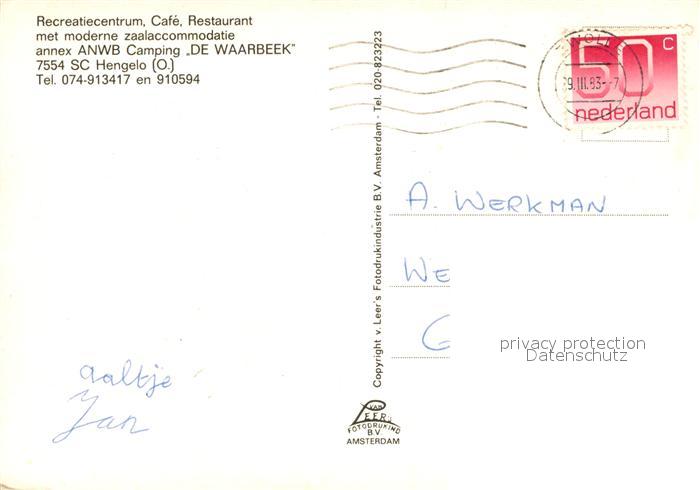 Recreatiecentrum, Café, Restaurant
met moderne zaalaccommodatie
annex ANWB Camping „DE WAARBEEK"
7554 SC Hengelo (O.)
Tel. 074-913417 en 910594
50 C
nederland
9.III.83
Copyright v. Leer's Fotodrukindustrie B.V. Amsterdam - Tel. 020-823223
A. WERKMAN
WE
G
privacy protection
Datenschutz
aaltje
Jan
VAN
LEER'S
FOTODRUKIND
B.V.
AMSTERDAM